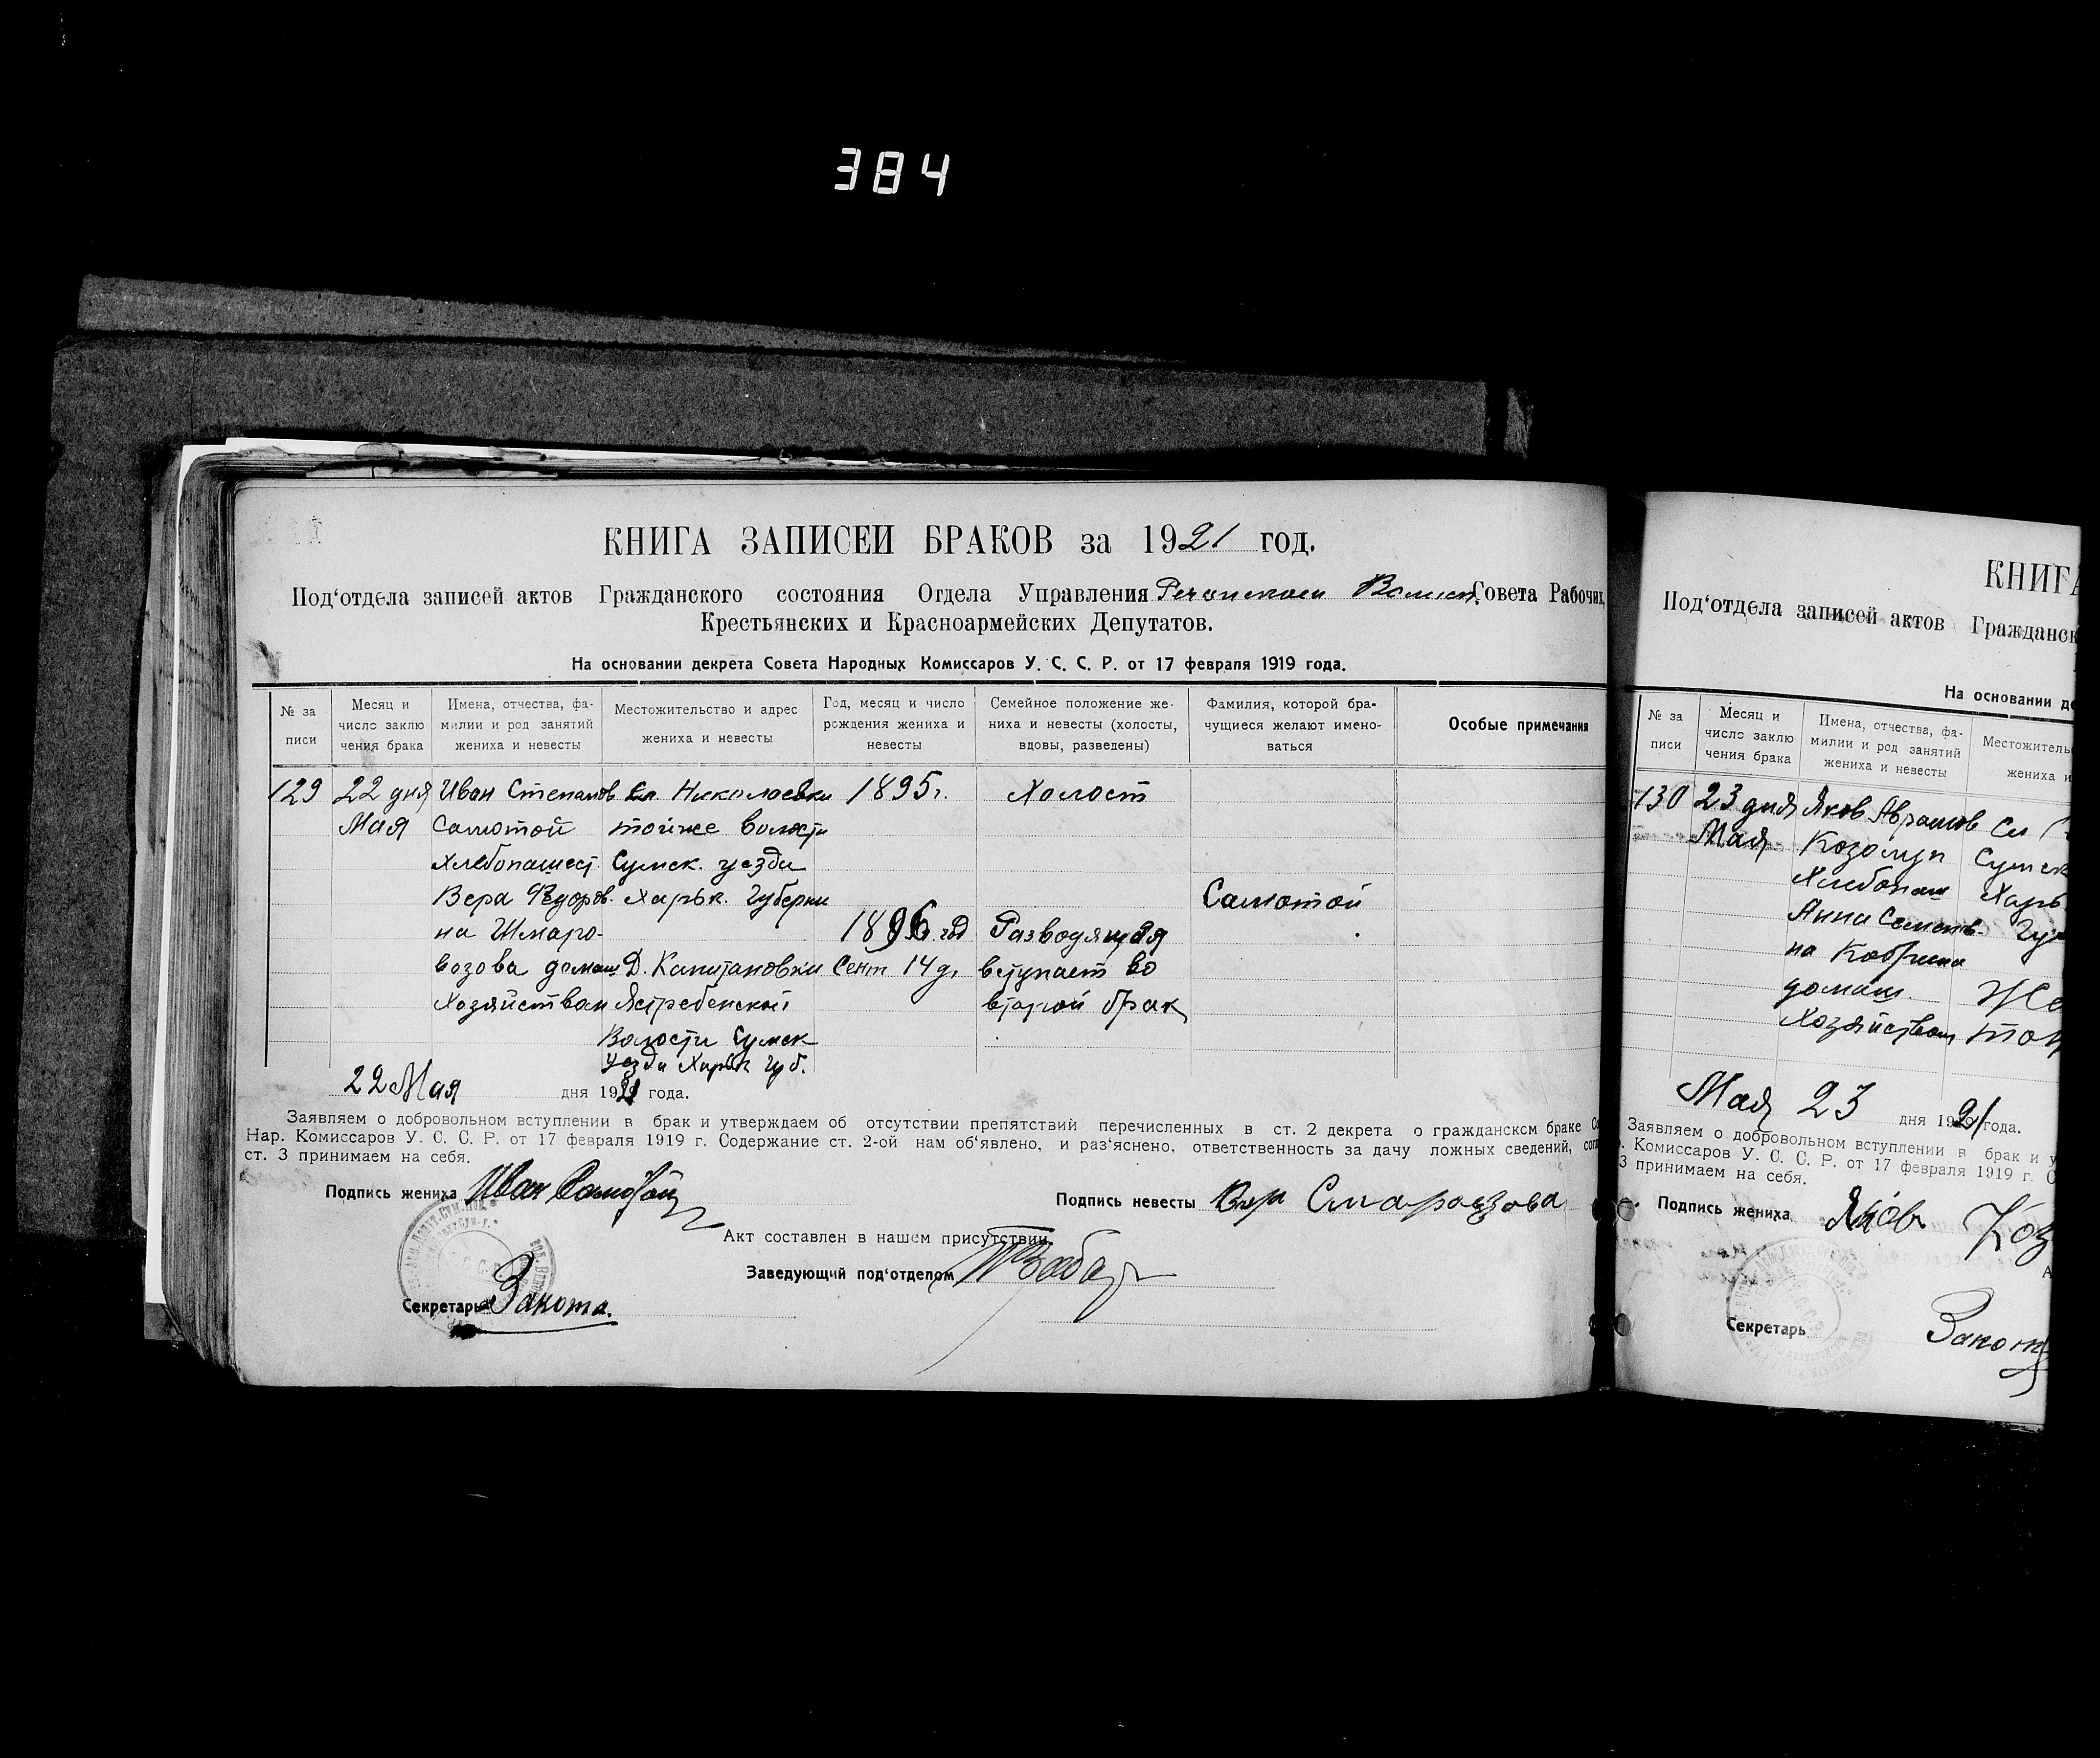 384
КНИГА ЗАПИСЕЙ БРАКОВ за 1921 год.
Под‘отдела записей актов Гражданского состояния Отдела Управления Совета Рабочих,
Крестьянских и Красноармейских Депутатов.
На основании декрета Совета Народных Комиссаров У. С. С. Р. от 17 февраля 1919 года.
№ за
писи
Месяц и
число заклю
чения брака
Имена, отчества, фа-
милии и род занятий
жениха и невесты
Местожительство и адрес
жениха и невесты
Год, месяц и число
рождения жениха и
невесты
Семейное положение же-
ниха и невесты (холосты,
вдовы, разведены)
Фамилия, которой бра-
чущиеся желают имено-
ваться
Особые примечания
129
22 дня
Мая
Иван Степанов
Самотой
Хлебопашест.
Вера Федоров.
на Шмаро-
возова домаш
Хозяйством
сл Николаевки
тойже волости
Сумск. уезда
Харьк. Губерни
Д. Капитановки
Ястребенской
Волости Сумск
уезда Харьк Губ.
1895 г.
1896 год
Сент 14 д.
Холост
Разводящая
вступает во
второй брак
Самотой
22 Мая дня 1921 года.
Заявляем о добровольном вступлении в брак и утверждаем об отсутствии препятствий перечисленных в ст. 2 декрета о гражданском браке Со
Нар. Комиссаров У. С. С. Р. от 17 февраля 1919 г. Содержание ст. 2-ой нам об‘явлено, и раз‘яснено, ответственность за дачу ложных сведений, согл
ст. 3 принимаем на себя.
Подпись жениха Иван Самотой
Подпись невесты Смаровзова
Акт составлен в нашем присутствии
Заведующий под‘отделом
Секретарь Закота.
КНИГА
Под‘отдела записей актов Гражданск
На основании де
№ за
писи
Месяц и
число заклю
чения брака
Имена, отчества, фа-
милии и род занятий
жениха и невесты
Местожитель
жениха и
130
23 дня
Мая
Яков Аврамов
Козолуп
Хлебопаш
Анна Семенов-
на
домаш.
Хозяйством
Сл
Сумск
Харь
Гу
Же
той
Мая 23 дня 1921 года.
Заявляем о добровольном вступлении в брак и у
. Комиссаров У. С. С. Р. от 17 февраля 1919 г. С
3 принимаем на себя.
Подпись жениха Яков Коз
А
Секретарь Закот